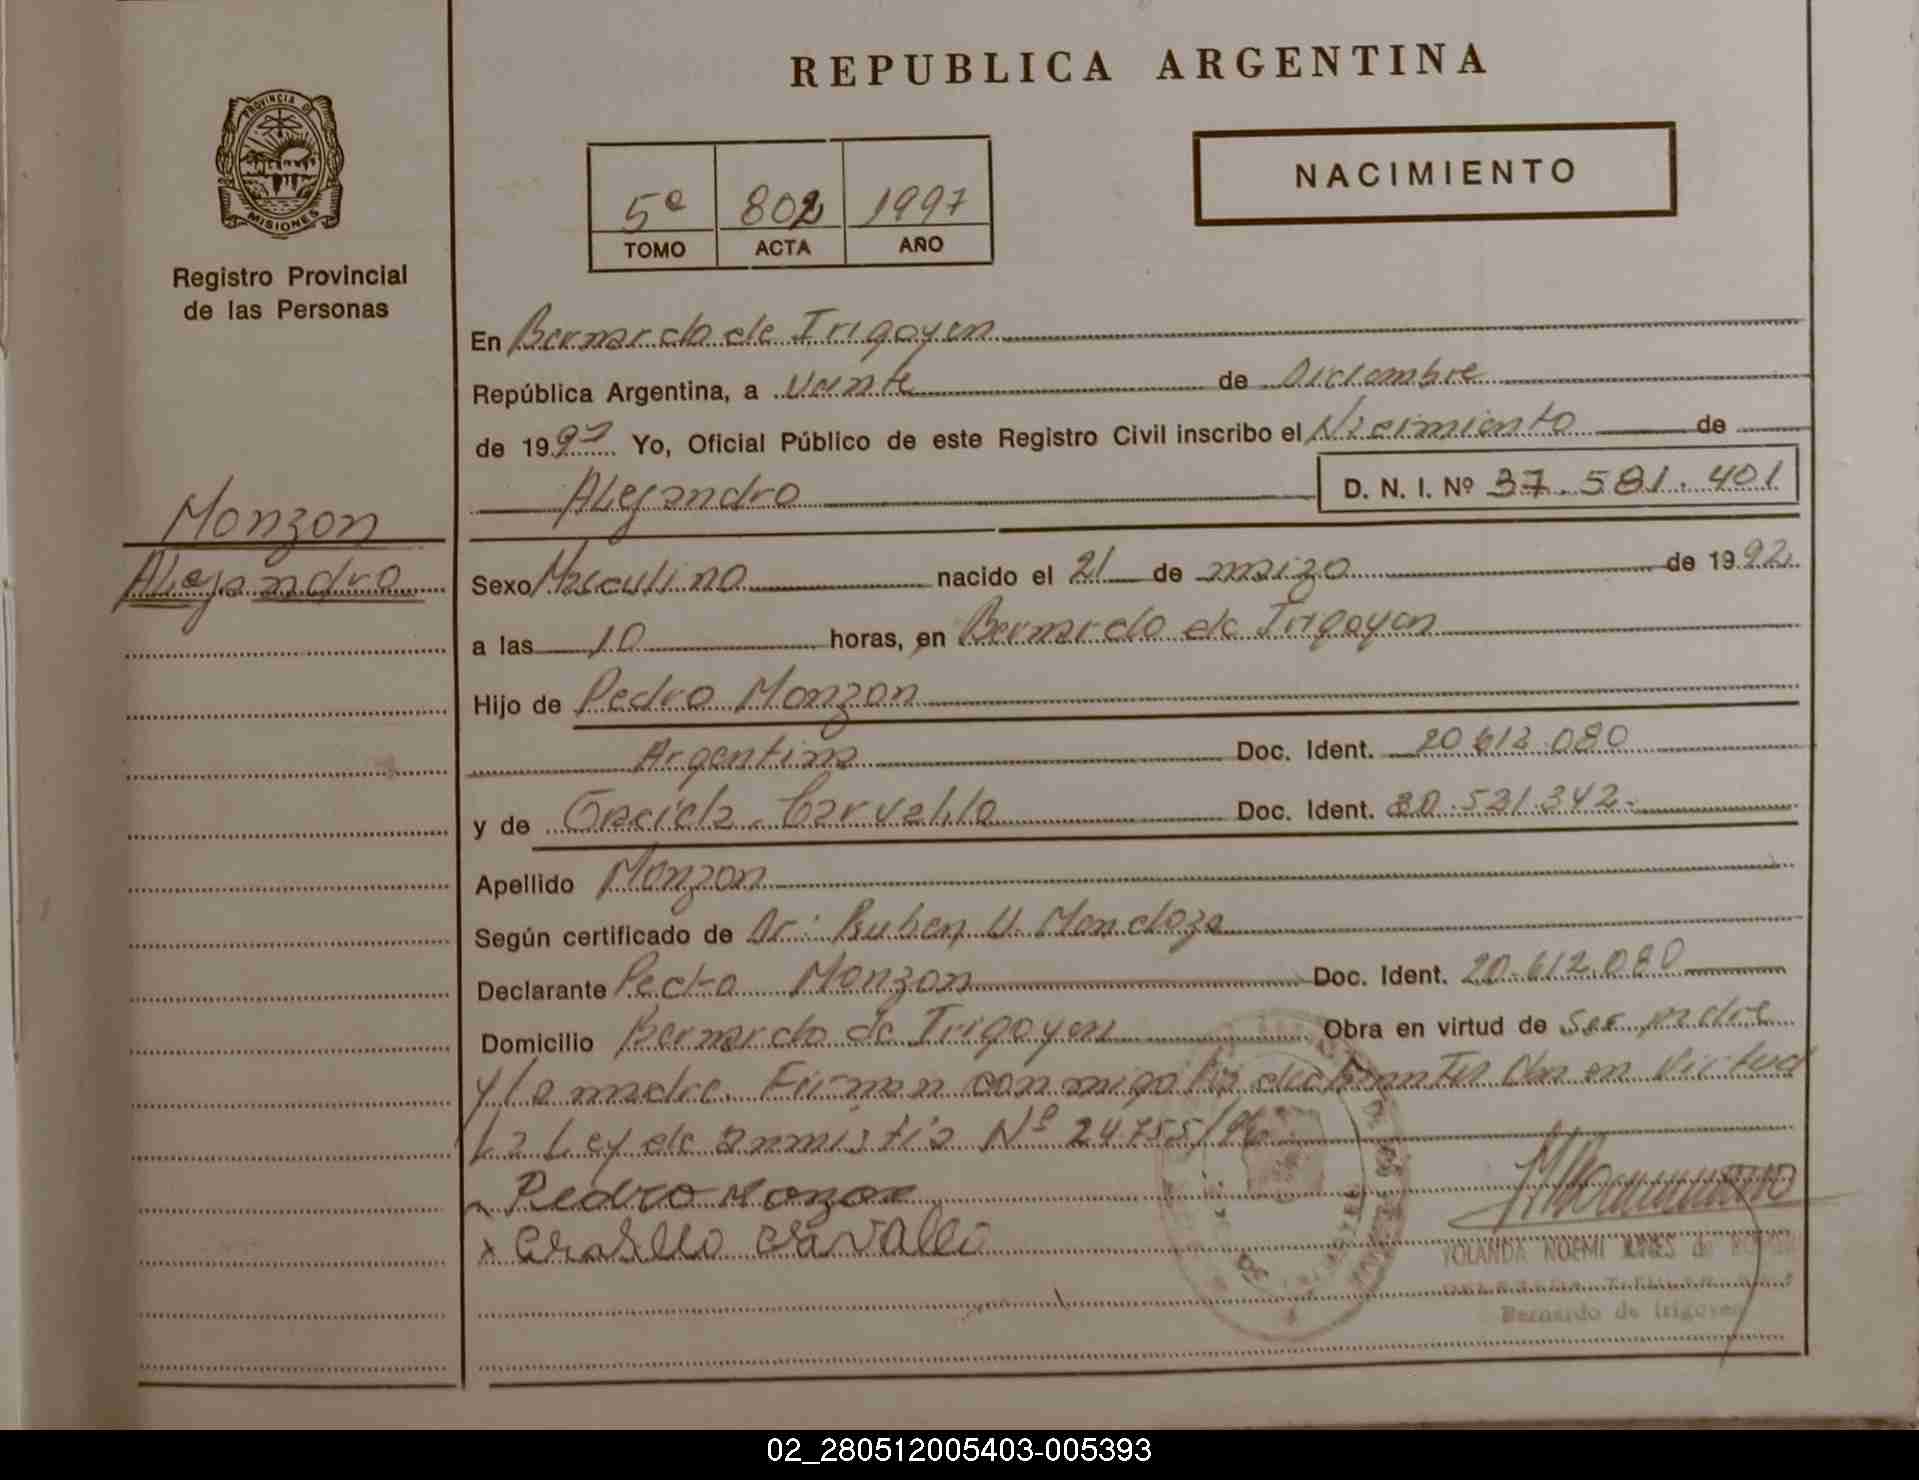 REPUBLICA ARGENTINA
PROVINCIA DE
MISIONES
Registro Provincial
de las Personas
5º 802 1997
TOMO ACTA AÑO
NACIMIENTO
En Bernardo de Irigoyen
República Argentina, a Veinte de Diciembre
de 1997 Yo, Oficial Público de este Registro Civil inscribo el Nacimiento de
Alejandro D. N. I. Nº 37.581.401
Monzon
Alejandro
Sexo Masculino nacido el 21 de marzo de 1992
a las 10 horas, en Bernardo de Irigoyen
Hijo de Pedro Monzon
Argentina Doc. Ident. 20 612 080
y de Carvallo Doc. Ident. 20.521.342
Apellido Monzon
Según certificado de Dr: Ruben V. Mendoza
Declarante Pedro Monzon Doc. Ident. 20.612.080
Domicilio Bernardo de Irigoyen Obra en virtud de ser padre
y la madre. Firman conmigo los declarantes en Virtud
La Ley de anmistia Nº 24755/96
Pedro Monzon
YOLANDA NOEMI de
Bernardo de Irigoyen
02_280512005403-005393